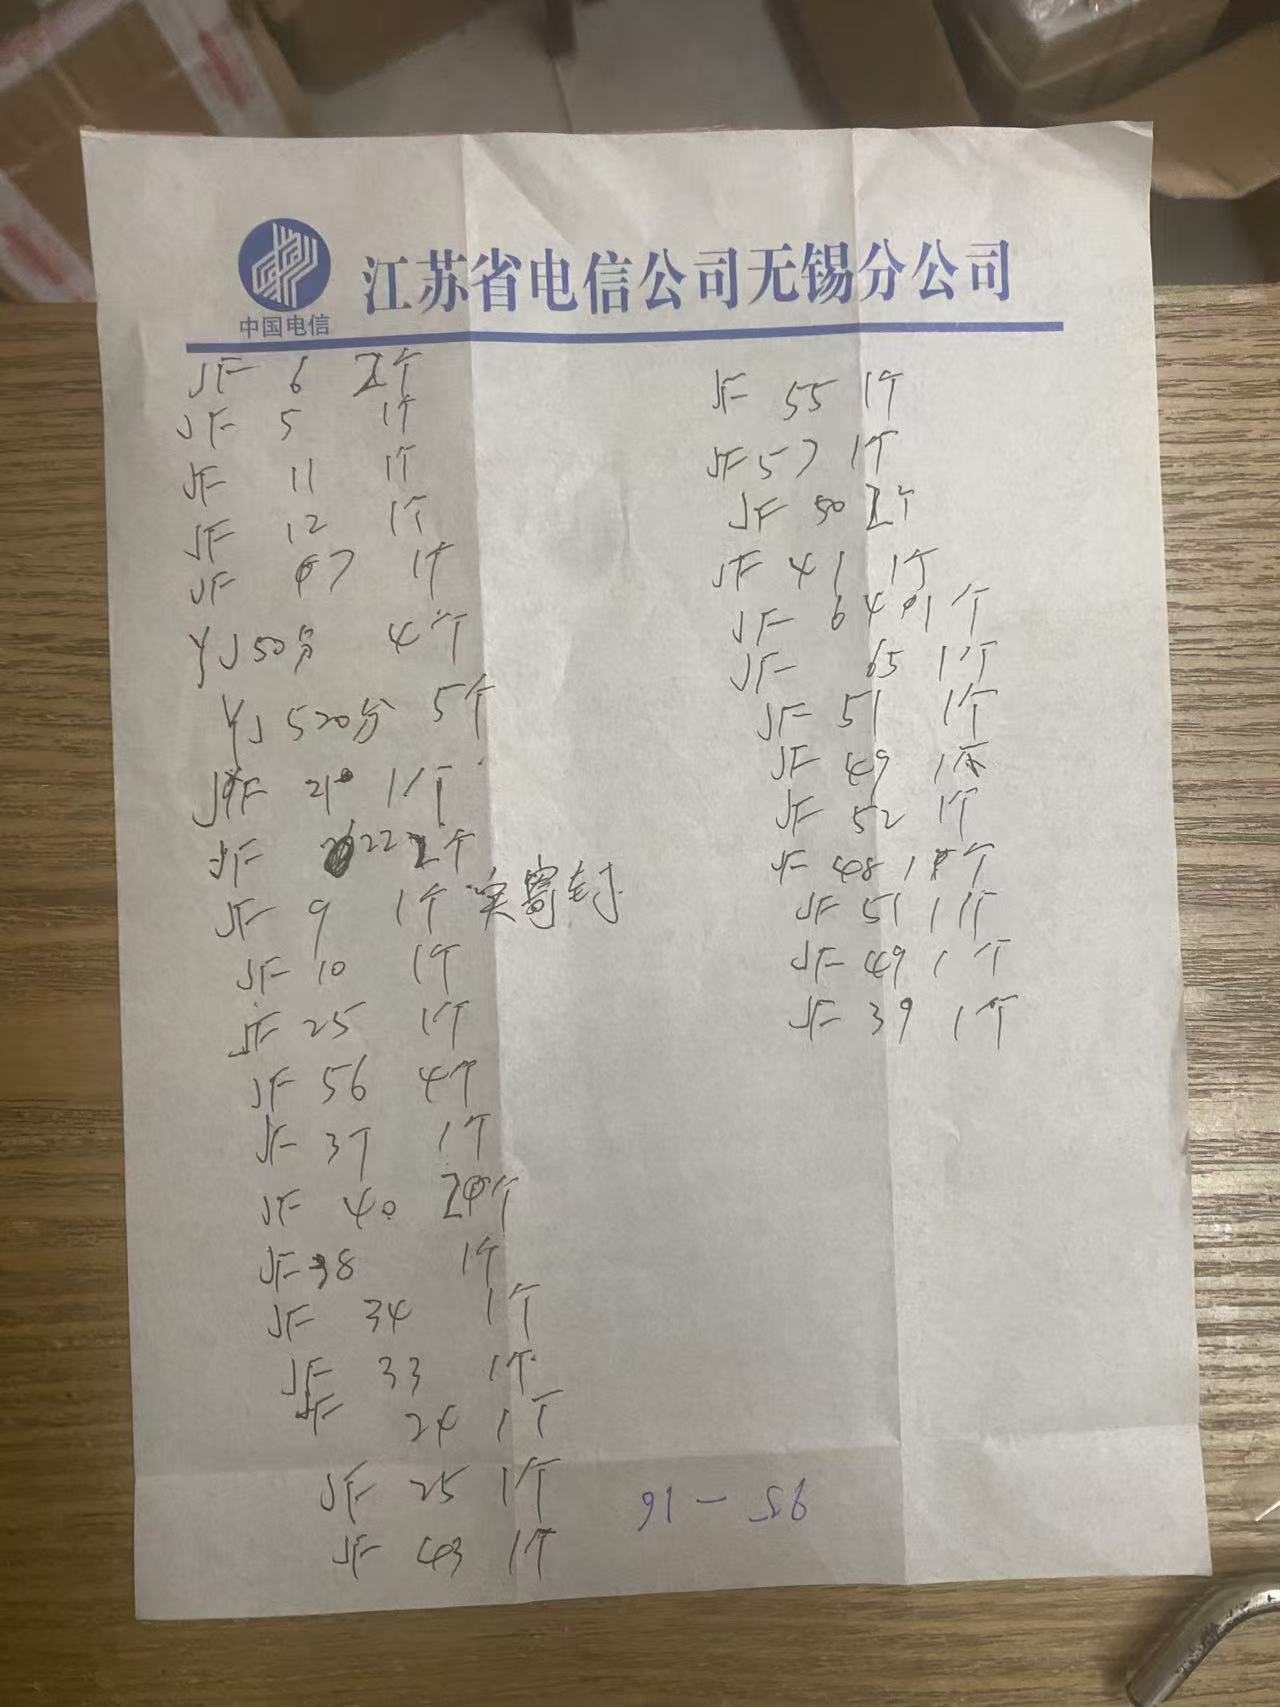 中国电信
江苏省电信公司无锡分公司
JF 6 2个
JF 5 1个
JF 11 1个
JF 12 1个
JF 67 1个
YJ 50分 4个
YJ 520分 5个
JF 21 1个
JF 22 2个
JF 9 1个 实寄封
JF 10 1个
JF 25 1个
JF 56 4个
JF 37 1个
JF 40 2个
JF 38 1个
JF 34 1个
JF 33 1个
JF 24 1个
JF 25 1个
JF 43 1个
JF 55 1个
JF 57 1个
JF 50 2个
JF 41 1个
JF 64 1个
JF 65 1个
JF 51 1个
JF 49 1个
JF 52 1个
JF 48 1个
JF 51 1个
JF 49 1个
JF 39 1个
95-16